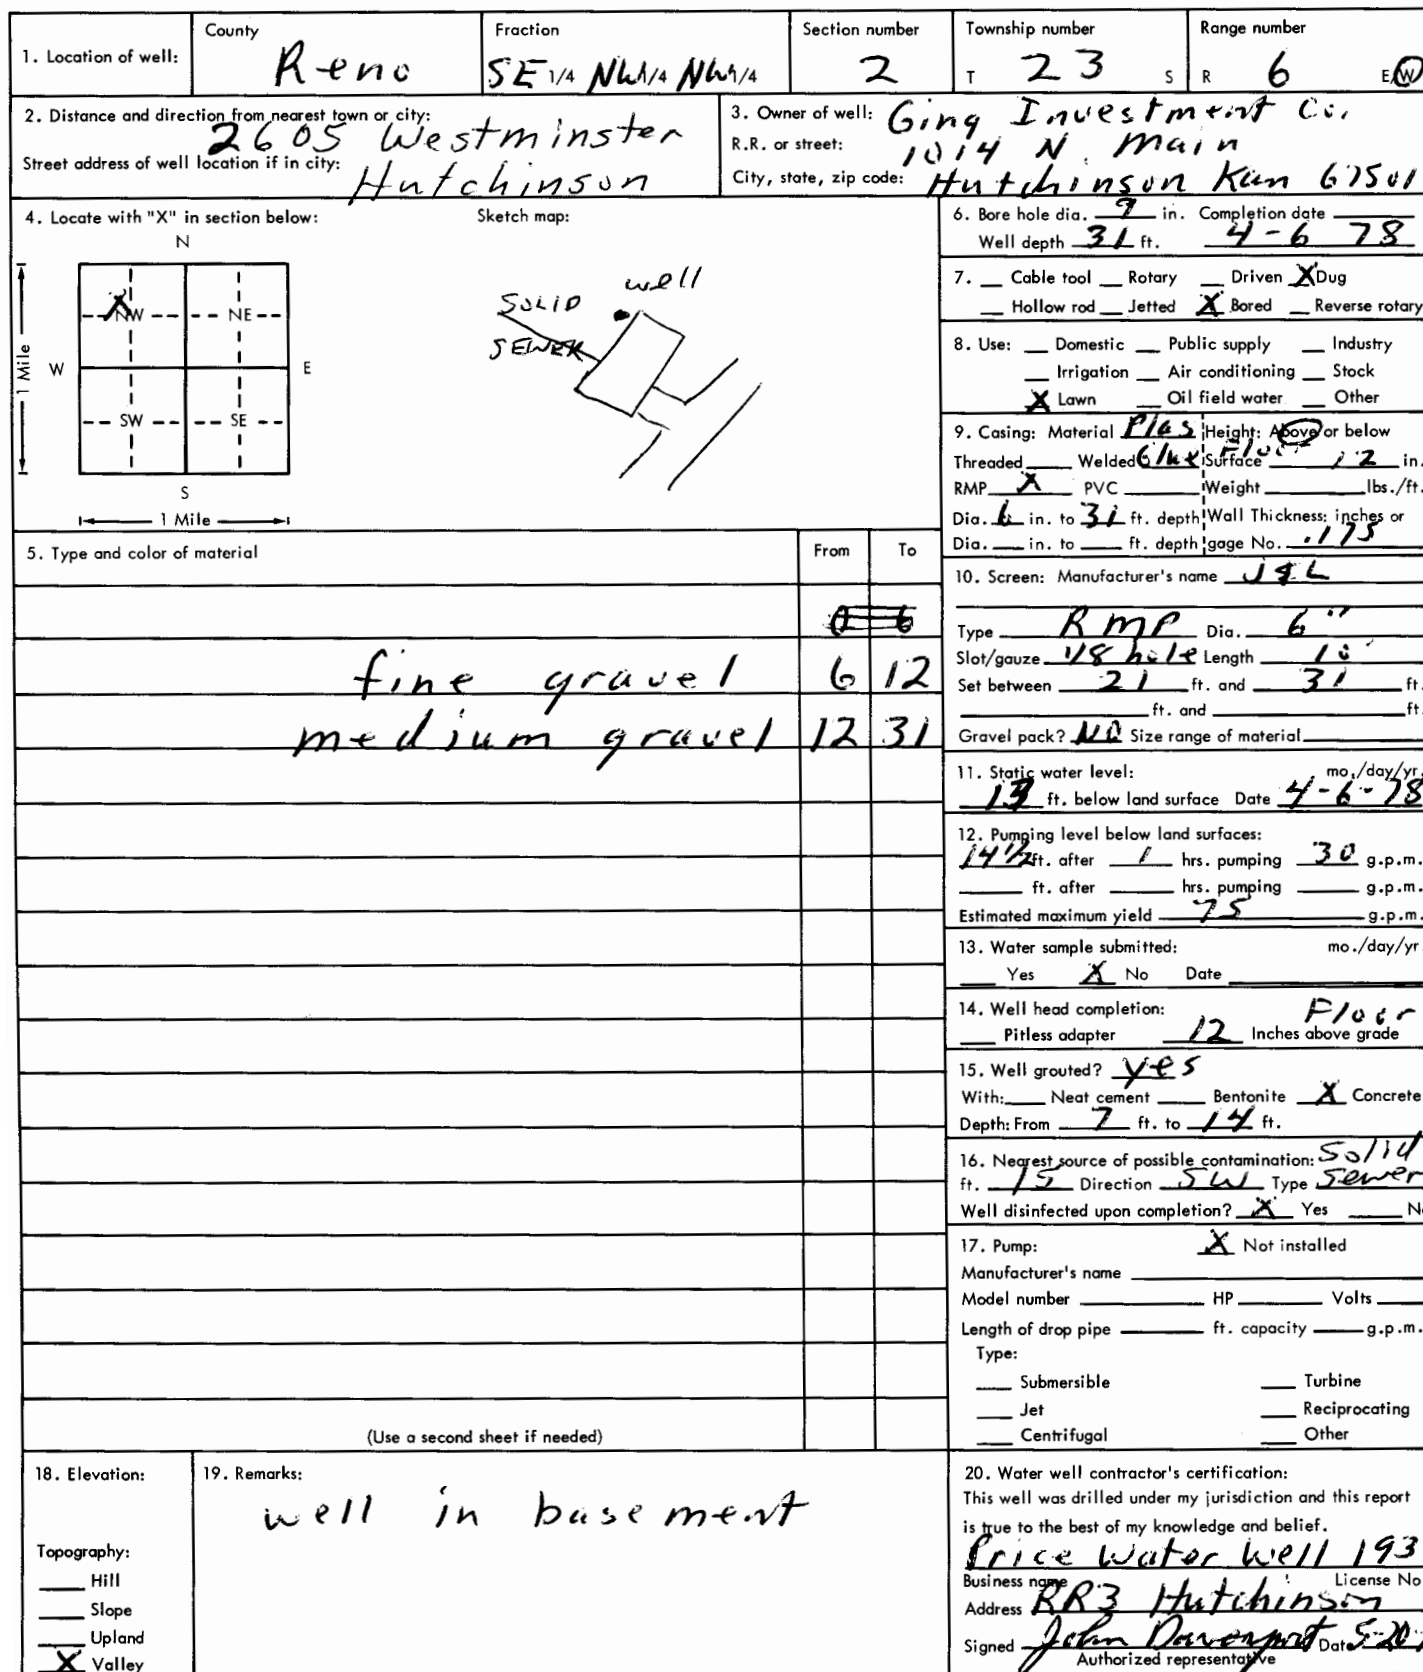 1. Location of well: County Reno Fraction SE 1/4 NW 1/4 NW 1/4 Section number 2 Township number T 23 S Range number R 6 E/W
2. Distance and direction from nearest town or city: 2605 Westminster
Street address of well location if in city: Hutchinson
3. Owner of well: Ging Investment Co.
R.R. or street: 1014 N. Main
City, state, zip code: Hutchinson Kan 67501
4. Locate with "X" in section below:
N
NW NE
W E
SW SE
S
1 Mile
1 Mile
Sketch map:
well
SOLID
SEWER
5. Type and color of material From To
0 6
fine gravel 6 12
medium gravel 12 31
(Use a second sheet if needed)
6. Bore hole dia. 9 in. Completion date
Well depth 31 ft. 4-6 78
7. Cable tool Rotary Driven X Dug
Hollow rod Jetted X Bored Reverse rotary
8. Use: Domestic Public supply Industry
Irrigation Air conditioning Stock
X Lawn Oil field water Other
9. Casing: Material Plas Height: Above or below
Threaded Welded Glue Floor Surface 12 in.
RMP X PVC Weight lbs./ft.
Dia. 6 in. to 31 ft. depth Wall Thickness: inches or
Dia. in. to ft. depth gage No. .175
10. Screen: Manufacturer's name J & L
Type RMP Dia. 6"
Slot/gauze 1/8 hole Length 10'
Set between 21 ft. and 31 ft.
ft. and ft.
Gravel pack? NO Size range of material
11. Static water level: mo./day/yr.
13 ft. below land surface Date 4-6-78
12. Pumping level below land surfaces:
14 1/2 ft. after 1 hrs. pumping 30 g.p.m.
ft. after hrs. pumping g.p.m.
Estimated maximum yield 75 g.p.m.
13. Water sample submitted: mo./day/yr.
Yes X No Date
14. Well head completion: Floor
Pitless adapter 12 Inches above grade
15. Well grouted? yes
With: Neat cement Bentonite X Concrete
Depth: From 7 ft. to 14 ft.
16. Nearest source of possible contamination: Solid
ft. 15 Direction SW Type Sewer
Well disinfected upon completion? X Yes No
17. Pump: X Not installed
Manufacturer's name
Model number HP Volts
Length of drop pipe ft. capacity g.p.m.
Type:
Submersible Turbine
Jet Reciprocating
Centrifugal Other
18. Elevation:
Topography:
Hill
Slope
Upland
X Valley
19. Remarks:
well in basement
20. Water well contractor's certification:
This well was drilled under my jurisdiction and this report
is true to the best of my knowledge and belief.
Price Water Well 193
Business name License No
Address RR3 Hutchinson
Signed John Davenport Date 5-20
Authorized representative